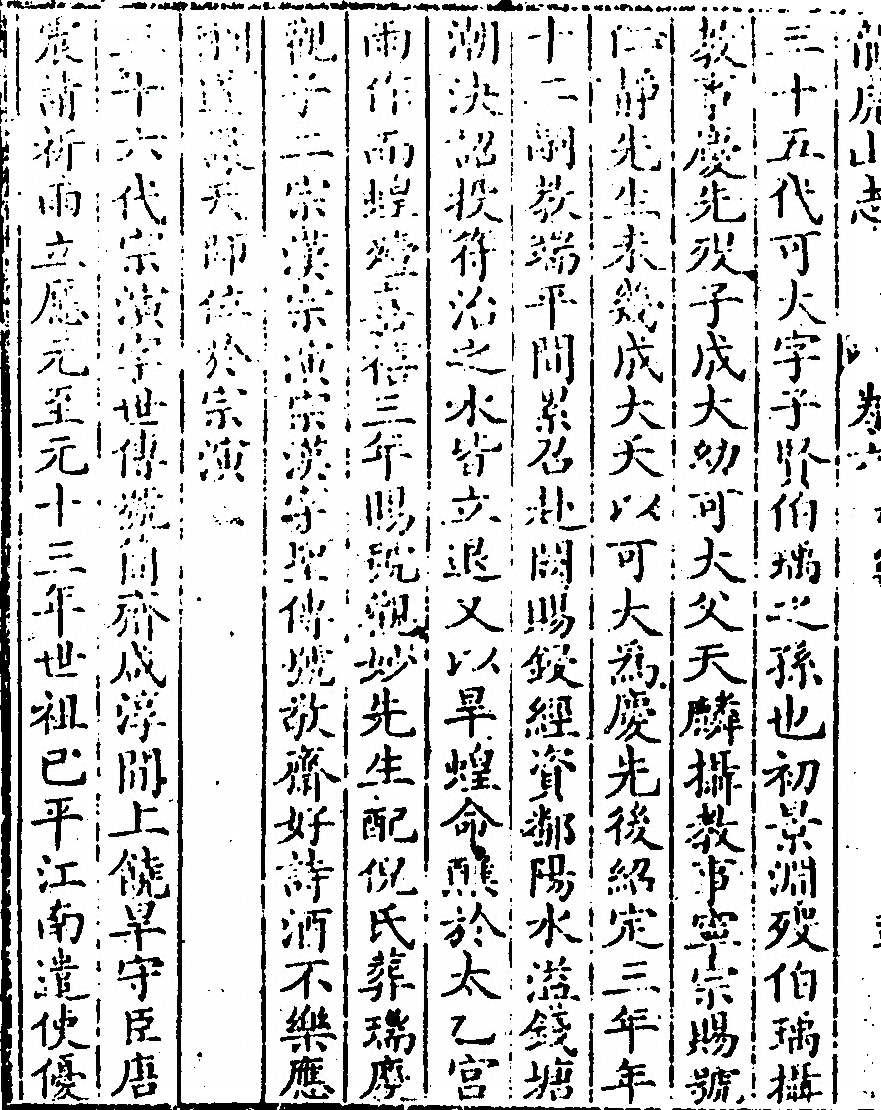 龍虎山志 卷六
三十五代可大字子賢伯瑀之孫也初景淵歿伯瑀攝
教事慶先歿子成大幼可大父天麟攝教事寧宗賜號
仁靜先生未幾成大夭以可大為慶先後紹定三年年
十二嗣教端平間累召赴闕賜錢經資鄱陽水溢錢塘
潮決詔投符治之水皆立退又以旱蝗命醮於太乙宮
雨作而蝗殪嘉禧三年賜號觀妙先生配倪氏葬瑞慶
觀子二宗漢宗演宗漢字聖傳號敬齋好詩酒不樂應
天師位於宗演
三十六代宗演字世傳號簡齋咸淳間上饒旱守臣唐
震請祈雨立應元至元十三年世祖已平江南遣使優